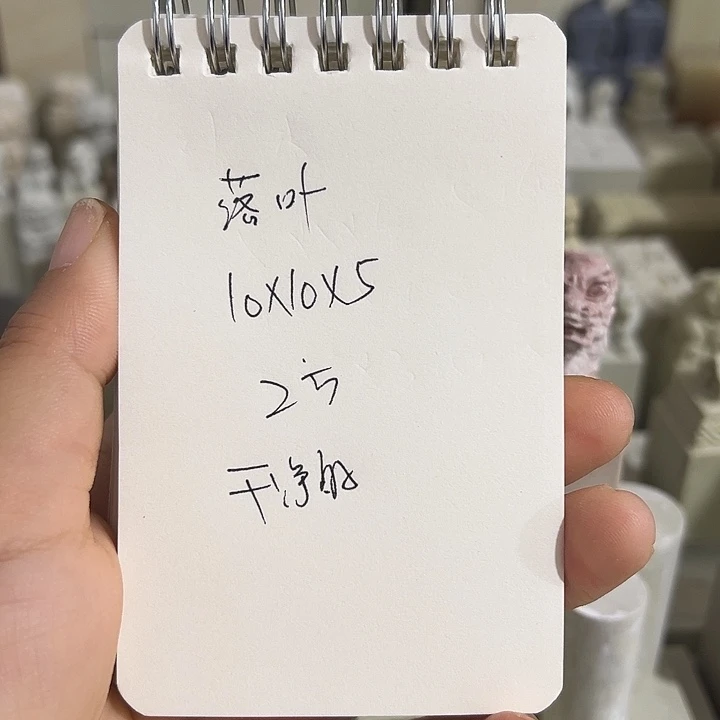 落叶
10X10X5
2方
干净的